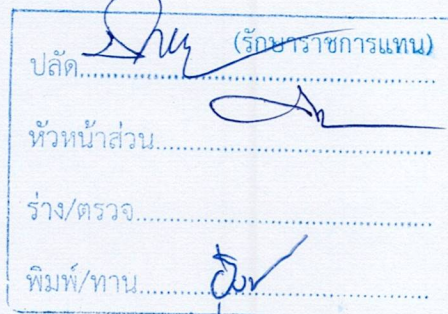 (รักษาราชการแทน)
ปลัด
หัวหน้าส่วน
ร่าง/ตรวจ
พิมพ์/ทาน